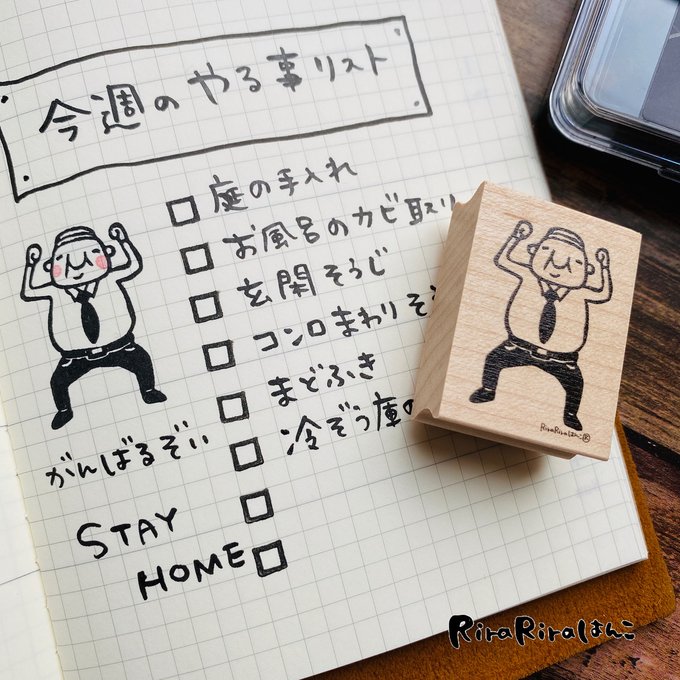 今週のやる事リスト
庭の手入れ
お風呂のカビ取り
玄関そうじ
コンロまわりそ
まどふき
冷ぞう庫の
がんばるぞぃ
STAY
HOME
RiraRiraはんこ®
RiraRiraはんこ